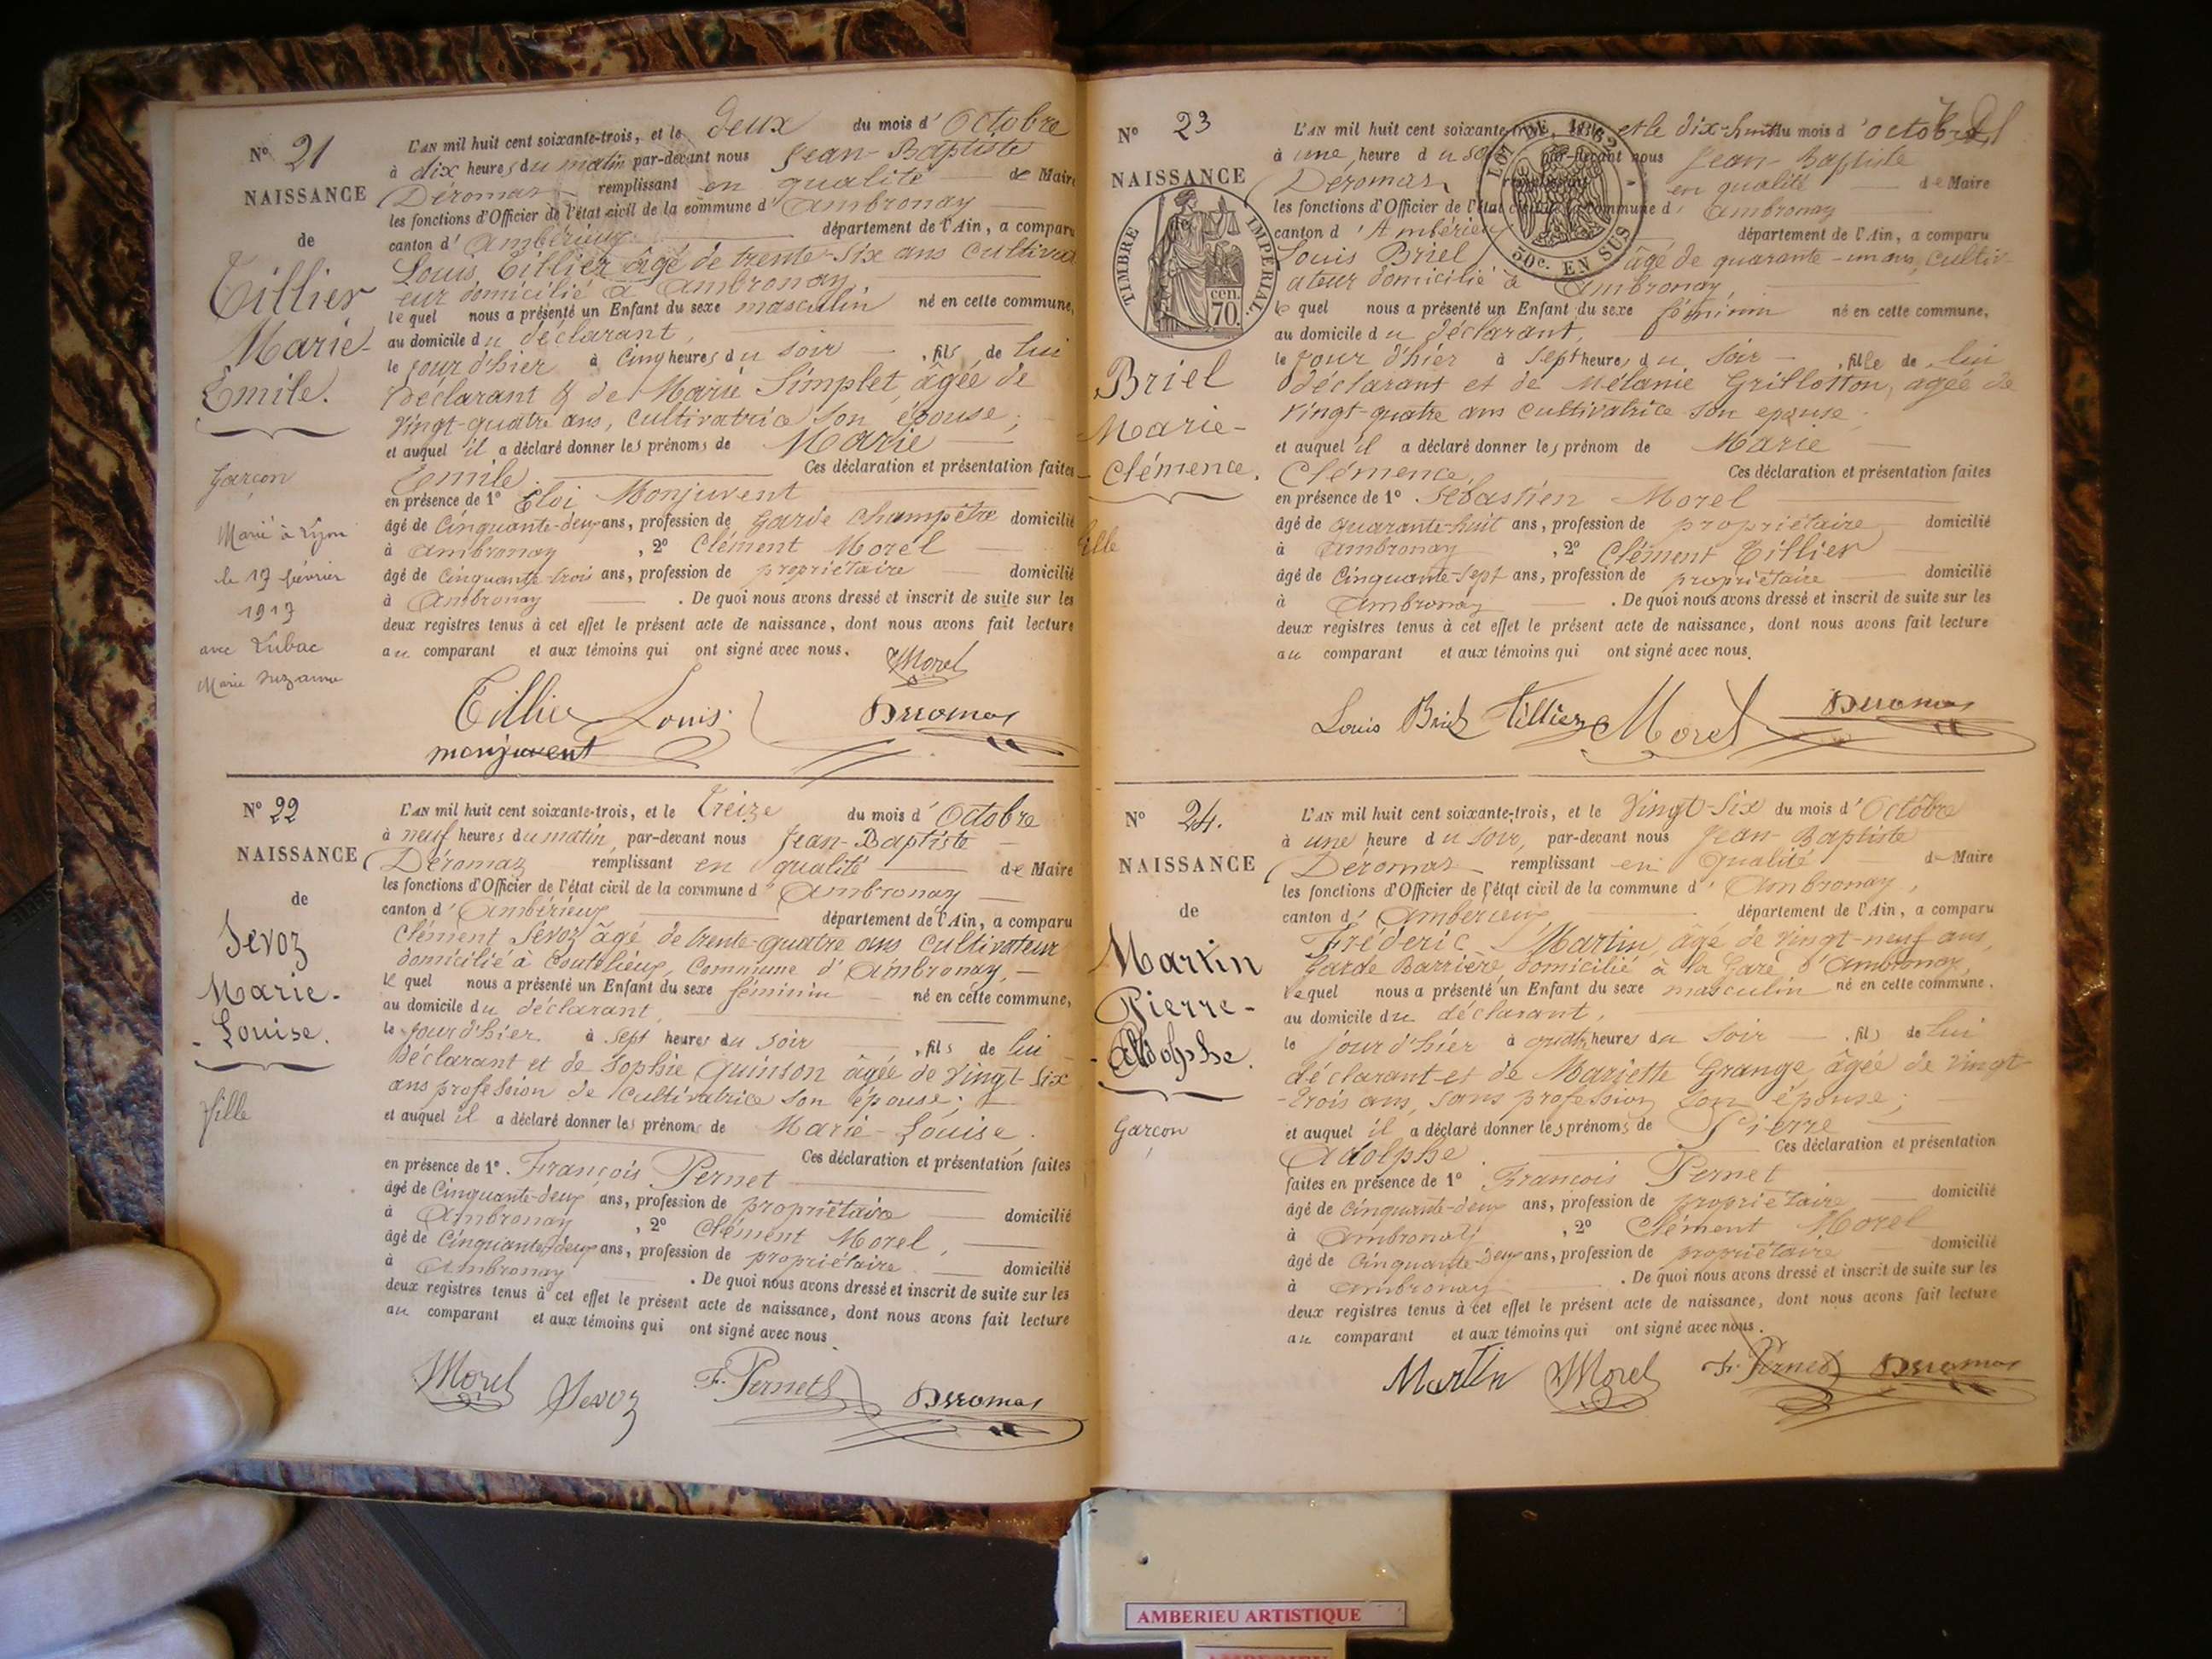 N° 21
NAISSANCE
de
Tillier
Marie-
Emile.
Garçon
Marié à Lyon
le 17 février
1917
avec Lubac
Marie Suzanne
L'AN mil huit cent soixante-trois, et le deux du mois d'Octobre
à dix heures du matin par-devant nous Jean-Baptiste
Déromas remplissant en qualité de Maire
les fonctions d'Officier de l'état civil de la commune d'Ambronay
canton d'Ambérieux département de l'Ain, a comparu
Louis Tillier âgé de trente-six ans cultivat
eur domicilié à Ambronay
lequel nous a présenté un Enfant du sexe masculin né en cette commune,
au domicile du déclarant,
le jour d'hier à cinq heures du soir, fils de lui
Déclarant & de Marie Simplet, âgée de
Vingt-quatre ans, cultivatrice son épouse;
et auquel il a déclaré donner les prénoms de Marie
Emile. Ces déclaration et présentation faites
en présence de 1° Eloi Monjuvent
âgé de Cinquante-deux ans, profession de Garde Champêtre domicilié
à Ambronay, 2° Clément Morel
âgé de Cinquante-trois ans, profession de propriétaire domicilié
à Ambronay. De quoi nous avons dressé et inscrit de suite sur les
deux registres tenus à cet effet le présent acte de naissance, dont nous avons fait lecture
au comparant et aux témoins qui ont signé avec nous.
Morel
Tillier Louis Deromas
monjuvent
N° 22
NAISSANCE
de
Sevoz
Marie-
-Louise.
fille
L'AN mil huit cent soixante-trois, et le Treize du mois d'Octobre
à neuf heures du matin, par-devant nous Jean-Baptiste
Déromas remplissant en qualité de Maire
les fonctions d'Officier de l'état civil de la commune d'Ambronay
canton d'Ambérieux département de l'Ain, a comparu
Clément Sevoz âgé de trente-quatre ans cultivateur
domicilié à Coutelieux, Commune d'Ambronay,
lequel nous a présenté un Enfant du sexe féminin né en cette commune,
au domicile du déclarant,
le jour d'hier à sept heures du soir, fils de lui
Déclarant et de Sophie Quinson âgée de Vingt-six
ans profession de Cultivatrice son épouse;
et auquel il a déclaré donner les prénoms de Marie-Louise.
Ces déclaration et présentation faites
en présence de 1°. François Pernet
âgé de Cinquante-deux ans, profession de propriétaire
à Ambronay, 2° Clément Morel, domicilié
âgé de Cinquante-deux ans, profession de propriétaire
à Ambronay domicilié
. De quoi nous avons dressé et inscrit de suite sur les
deux registres tenus à cet effet le présent acte de naissance, dont nous avons fait lecture
au comparant et aux témoins qui ont signé avec nous.
Morel Sevoz F. Pernet Deromas
N° 23
NAISSANCE
de
TIMBRE IMPÉRIAL
cen.
70.
Briel
Marie-
-Clémence.
fille
LOI DE 1862
50c. EN SUS
L'AN mil huit cent soixante-trois, et le dix-huit du mois d'octobre
à une heure du soir par-devant nous Jean-Baptiste
Déromas remplissant en qualité de Maire
les fonctions d'Officier de l'état civil de la commune d'Ambronay
canton d'Ambérieux département de l'Ain, a comparu
Louis Briel âgé de quarante-un ans, cultiv
ateur domicilié à Ambronay,
lequel nous a présenté un Enfant du sexe féminin né en cette commune,
au domicile du déclarant,
le jour d'hier à sept heures du soir, fille de lui
déclarant et de Mélanie Grillotton, âgée de
vingt-quatre ans cultivatrice son épouse
et auquel il a déclaré donner les prénom de Marie
Clémence, Ces déclaration et présentation faites
en présence de 1°. Sébastien Morel
âgé de quarante-huit ans, profession de propriétaire domicilié
à Ambronay, 2° Clément Tillier
âgé de Cinquante-sept ans, profession de propriétaire domicilié
à Ambronay. De quoi nous avons dressé et inscrit de suite sur les
deux registres tenus à cet effet le présent acte de naissance, dont nous avons fait lecture
au comparant et aux témoins qui ont signé avec nous.
Louis Briel Tillier Morel Deromas
N° 24.
NAISSANCE
de
Martin
Pierre-
-Adolphe.
Garçon
L'AN mil huit cent soixante-trois, et le Vingt-six du mois d'Octobre
à une heure du soir, par-devant nous Jean-Baptiste
Déromas remplissant en qualité de Maire
les fonctions d'Officier de l'état civil de la commune d'Ambronay,
canton d'Amberieux département de l'Ain, a comparu
Fréderic Martin, âgé de vingt-neuf ans,
Garde Barrière domicilié à la Gare d'Ambronay,
lequel nous a présenté un Enfant du sexe masculin né en cette commune.
au domicile du déclarant,
le jour d'hier à quatre heures du soir, fils de lui
déclarant et de Mariette Grange âgée de vingt-
-trois ans, sans profession son épouse;
et auquel il a déclaré donner les prénoms de Pierre
Adolphe Ces déclaration et présentation
faites en présence de 1° François Pernet
âgé de Cinquante-deux ans, profession de propriétaire domicilié
à Ambronay, 2° Clément Morel
âgé de Cinquante-deux ans, profession de propriétaire domicilié
à Ambronay. De quoi nous avons dressé et inscrit de suite sur les
deux registres tenus à cet effet le présent acte de naissance, dont nous avons fait lecture
au comparant et aux témoins qui ont signé avec nous.
Martin Morel F. Pernet Deromas
AMBERIEU ARTISTIQUE
AMBERIEU